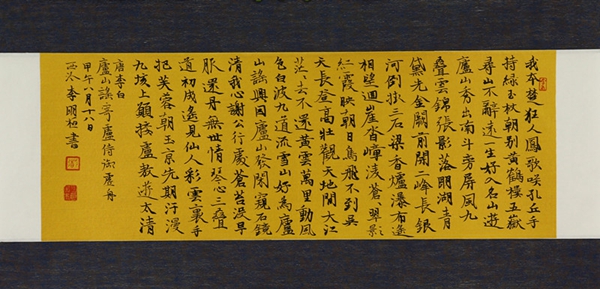 我本楚狂人鳳歌咲孔丘手
持綠玉杖朝別黃鶴樓五嶽
尋山不辭遠一生好入名山遊
廬山秀出南斗旁屏風九
疊雲錦張影落明湖青
黛光金闕前開二峰長銀
河倒掛三石梁香爐瀑布遙
相望迴崖沓嶂淩蒼〻翠影
紅霞映朝日鳥飛不到吳
天長登高壯觀天地間大江
茫〻去不還黃雲萬里動風
色白波九道流雪山好為廬
山謠興因廬山發閑窺石鏡
清我心謝公行處蒼苔沒早
服還丹無世情琴心三疊
道初成遙見仙人彩雲裏手
把芙蓉朝玉京先期汗漫
九垓上願接盧敖遊太清
唐李白
廬山謠寄盧侍御虛舟
甲午八月十八日
西泠李明桓書